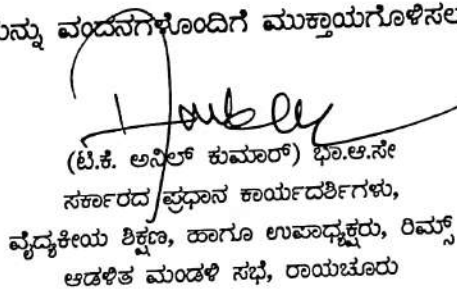 ಯನ್ನು ವಂದನಗಳೊಂದಿಗೆ ಮುಕ್ತಾಯಗೊಳಿಸಲ
(ಟಿ.ಕೆ. ಅನಿಲ್ ಕುಮಾರ್) ಭಾ.ಆ.ಸೇ
ಸರ್ಕಾರದ ಪ್ರಧಾನ ಕಾರ್ಯದರ್ಶಿಗಳು,
ವೈದ್ಯಕೀಯ ಶಿಕ್ಷಣ, ಹಾಗೂ ಉಪಾಧ್ಯಕ್ಷರು, ರಿಮ್ಸ್
ಆಡಳಿತ ಮಂಡಳಿ ಸಭೆ, ರಾಯಚೂರು